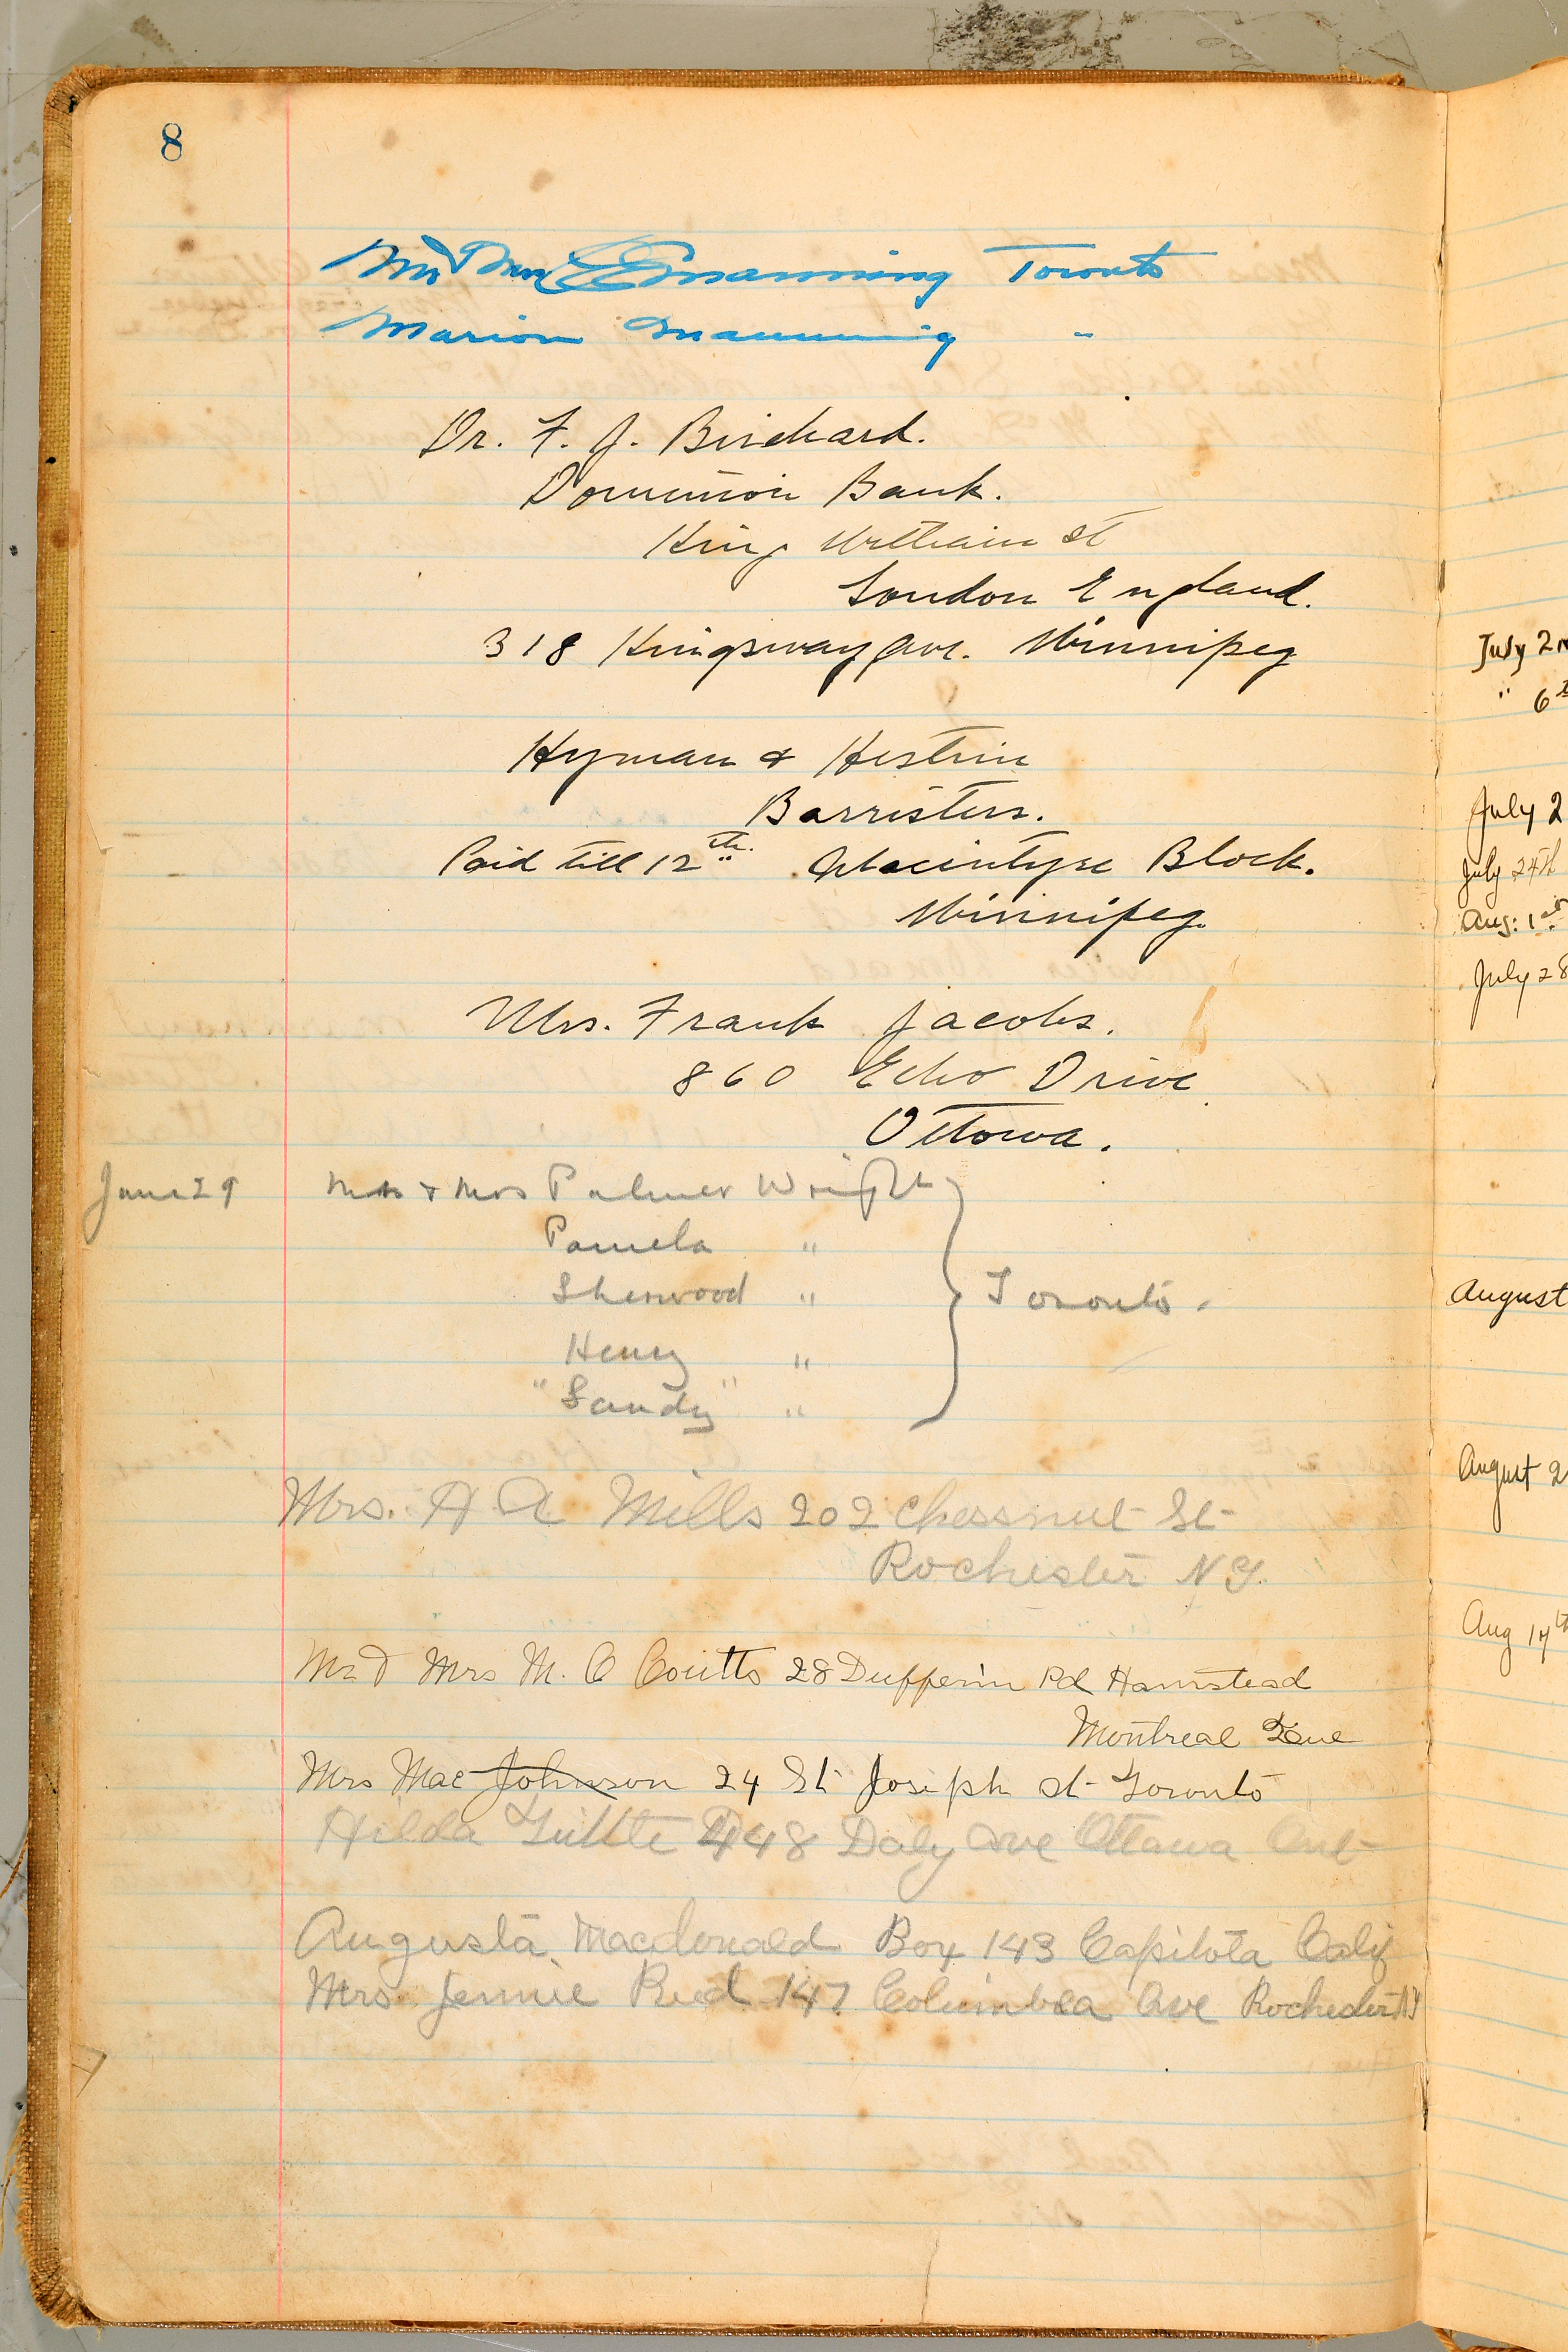 8
Mr & Mrs E Manning Toronto
Marion Manning "
Dr. F. J. Birchard.
Dominion Bank.
King William St
London England.
318 Kingsway Ave. Winnipeg
Hyman & Hestrin
Barristers.
Paid till 12th. Macintyre Block.
Winnipeg.
Mrs. Frank Jacobs.
860 Echo Drive
Ottowa.
June 29 Mr & Mrs Palmer Wright
Pamela "
Sherwood " Toronto.
Henry "
"Sandy" "
Mrs. H A Mills 202 Chessnut St
Rochester N Y.
Mr & Mrs M. C Coutts 28 Dufferin Rd Hamstead
Montreal Que
Mrs Mae Johnson 24 St Joseph St Toronto
Hilda 448 Daly Ave Ottawa Ont
Augusta Macdonald Box 143 Capitola Calif
Mrs Jennie Reed 147 Columbia Ave Rochester N Y
July 2n
" 6th
July 2
July 24th
Aug: 1st
July 28
August
August 2
Aug 14th